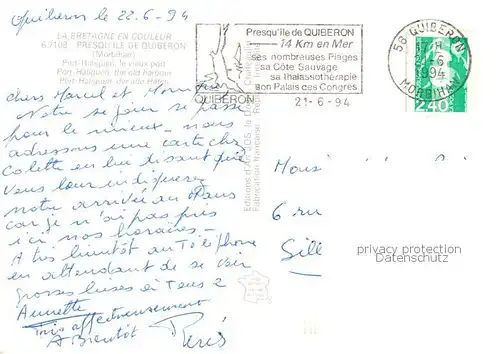 Quiberon le 22.6-94
LA BRETAGNE EN COULEUR
6.7108 PRESQU'ILE DE QUIBERON
(Morbihan)
Port-Haliguen, le vieux port
Port-Haliguen, the old harbour
Port-Haliguen, der alte Hafen
Presqu'île de QUIBERON
14 Km en Mer
ses nombreuses Plages
sa Côte Sauvage
sa thalassothérapie
son Palais des Congrès
QUIBERON
21-6-94
56 QUIBERON
17H
1994
MORBIHAN
2,40
chers Marcel et
Notre séjour se passe
pour le mieux - nous
adressons une carte chez
Colette en lui disant qu'elle
veus leur indiquerez
notre arrivée au Mans
car je n'ai pas pris
ici nos horaires -
A très bientôt au Téléphone
en attendant de se voir
grosses bises à Tous 2
Annette
Très affectueusement
A Bientôt
Editions d'Art JOS
Fabrication française
Monsi
6 rue
Sill
privacy protection
Datenschutz